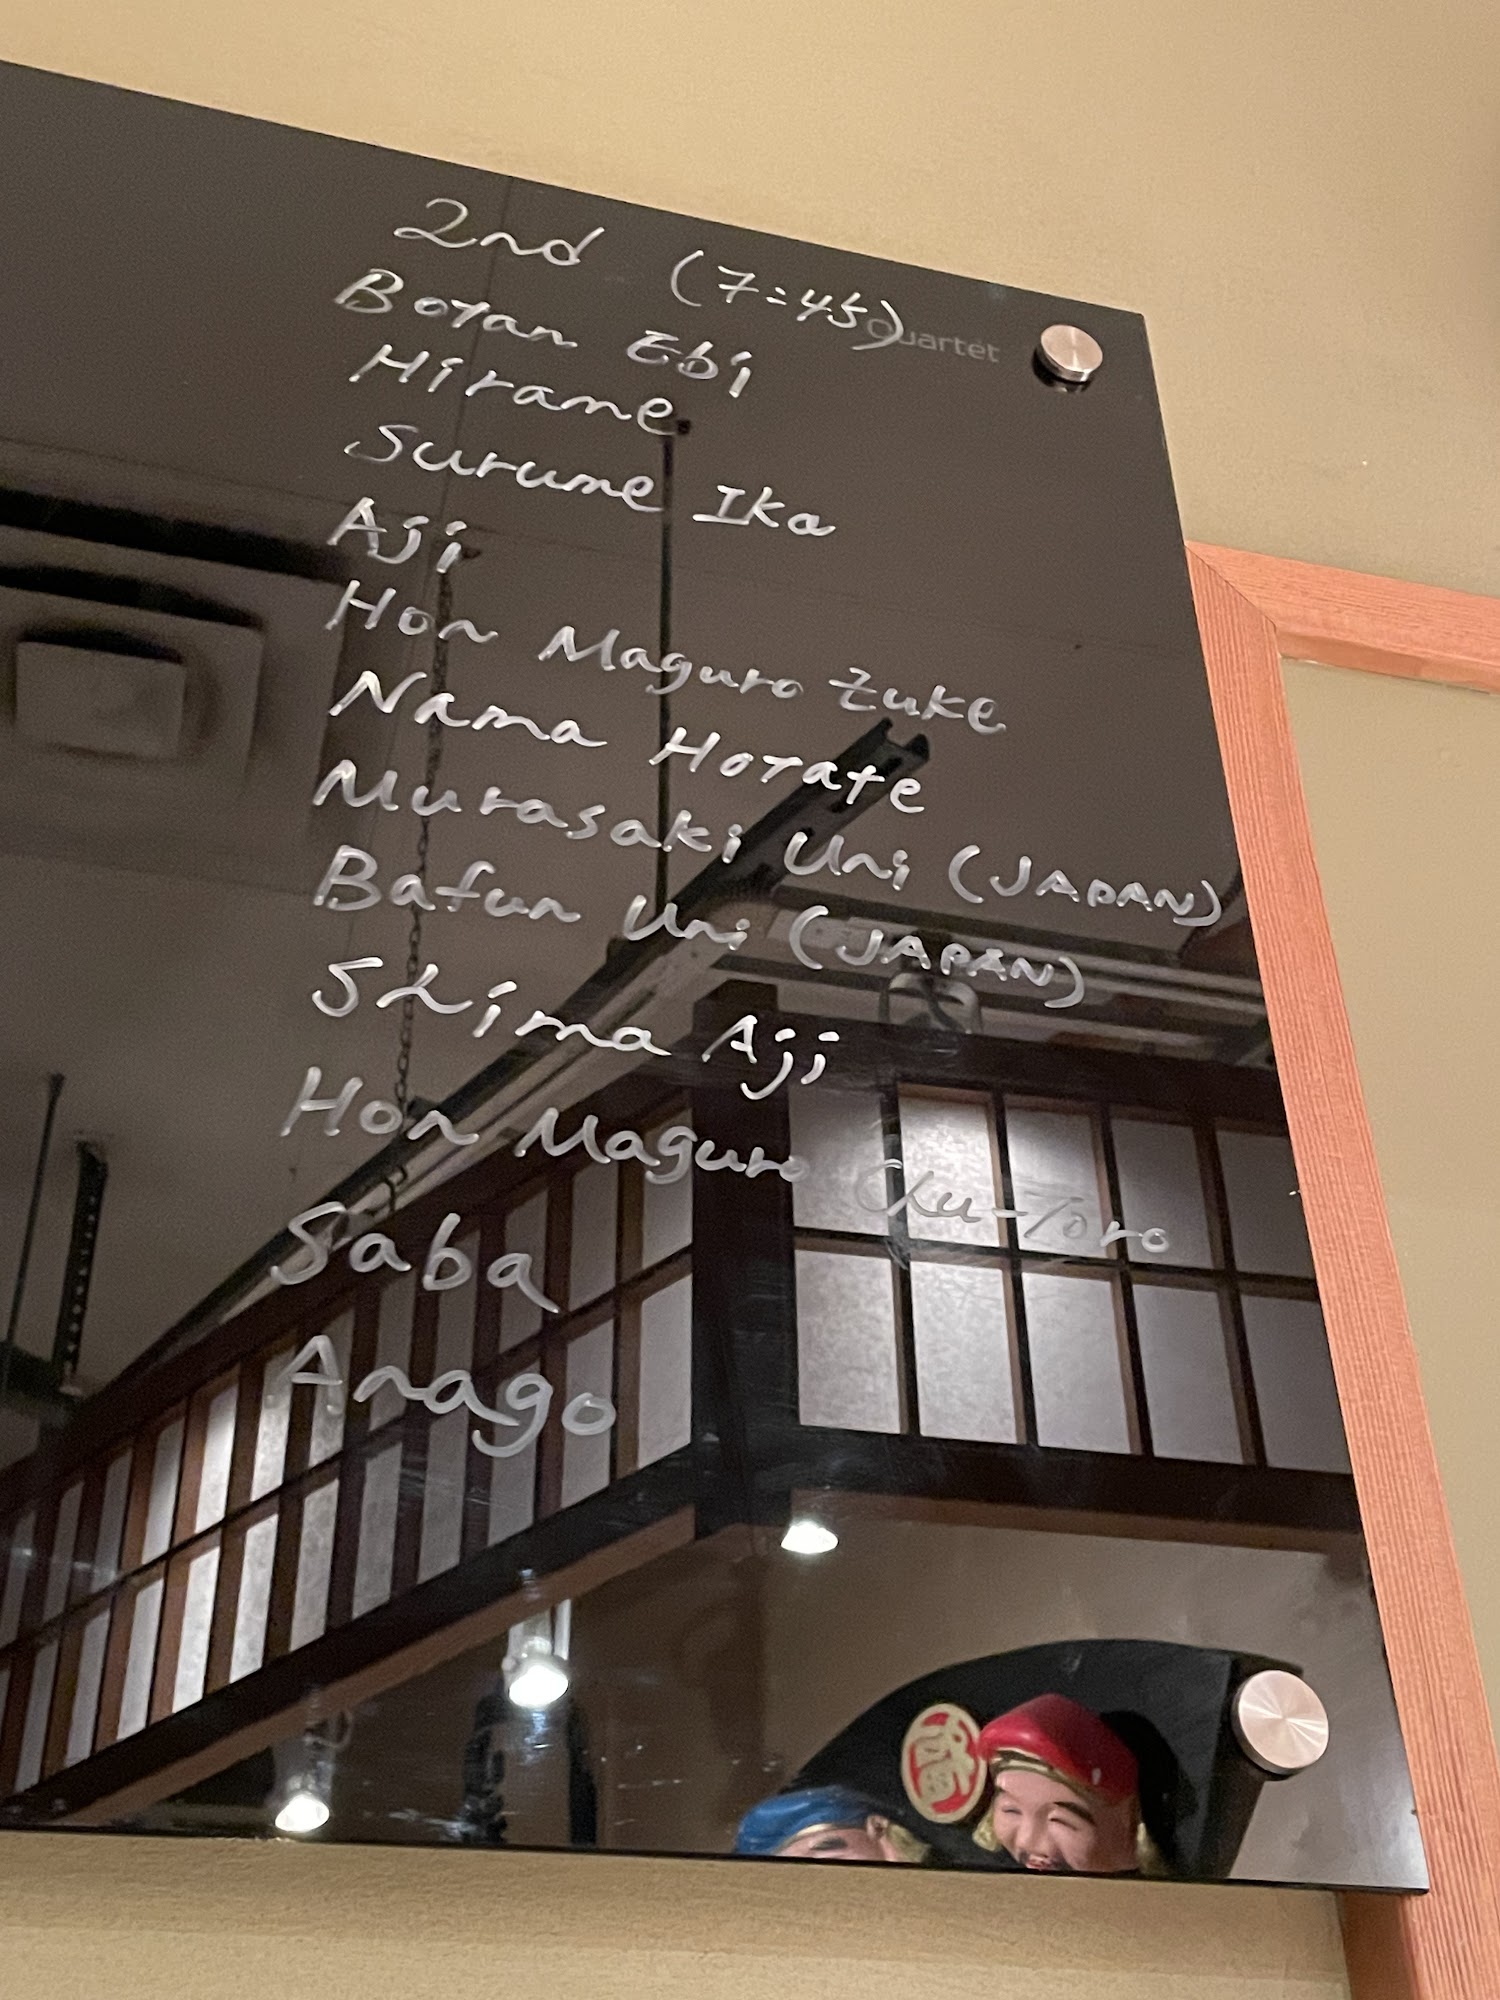 2nd (7:45)
Quartet
Botan Ebi
Hirame
Surume Ika
Aji
Hon Maguro Zuke
Nama Hotate
Murasaki Uni (JAPAN)
Bafun Uni (JAPAN)
Shima Aji
Hon Maguro Chu-Toro
Saba
Anago